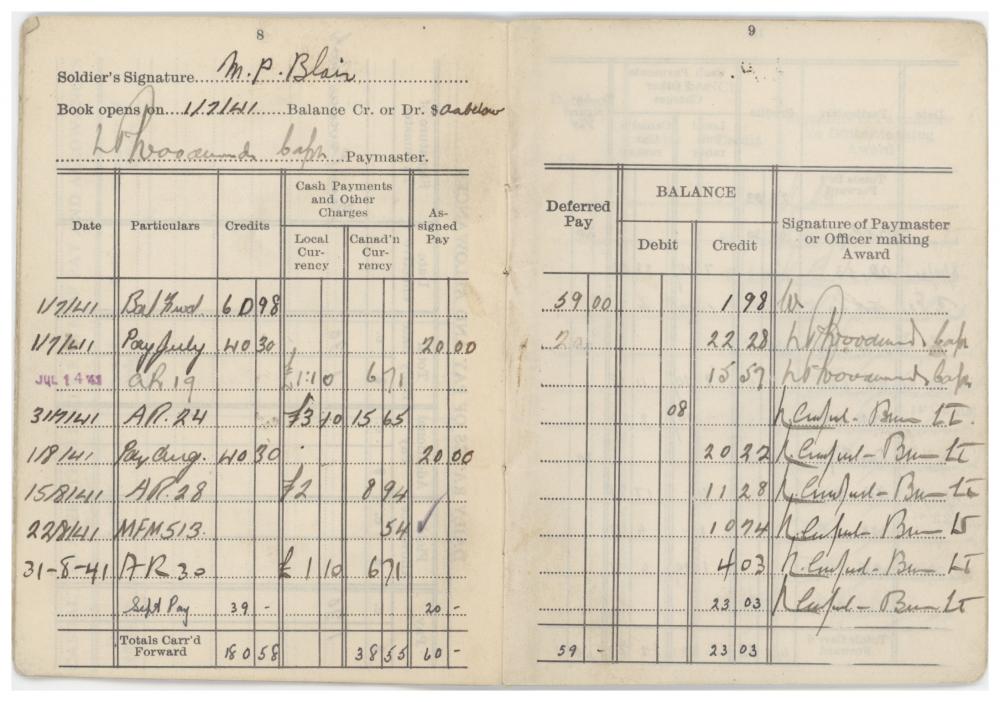 8
Soldier's Signature M. P. Blair
Book opens on 1/7/41 Balance Cr. or Dr. $ as below
Capt Paymaster.
Date Particulars Credits Cash Payments and Other Charges Local Currency Canad'n Currency Assigned Pay
1/7/41 Bal Fwd 60 98
1/7/41 Pay July 40 30 20 00
JUL 14 41 AR 19 £1:10 6 71
31/7/41 AR. 24 £3 10 15 65
1/8/41 Pay Aug. 40 30 20 00
15/8/41 AR. 28 £2 8 94
22/8/41 MFM 513. 54 ✓
31-8-41 AR 30 £1 10 6 71
Sept Pay 39 - 20 -
Totals Carr'd Forward 180 58 38 55 60 -
9
Deferred Pay BALANCE Debit Credit Signature of Paymaster or Officer making Award
59 00 1 98
22 28 Capt
15 57 Capt
08 Lt.
20 22 Lt
11 28 Lt
10 74 Lt
4 03 Lt
23 03 Lt
59 - 23 03